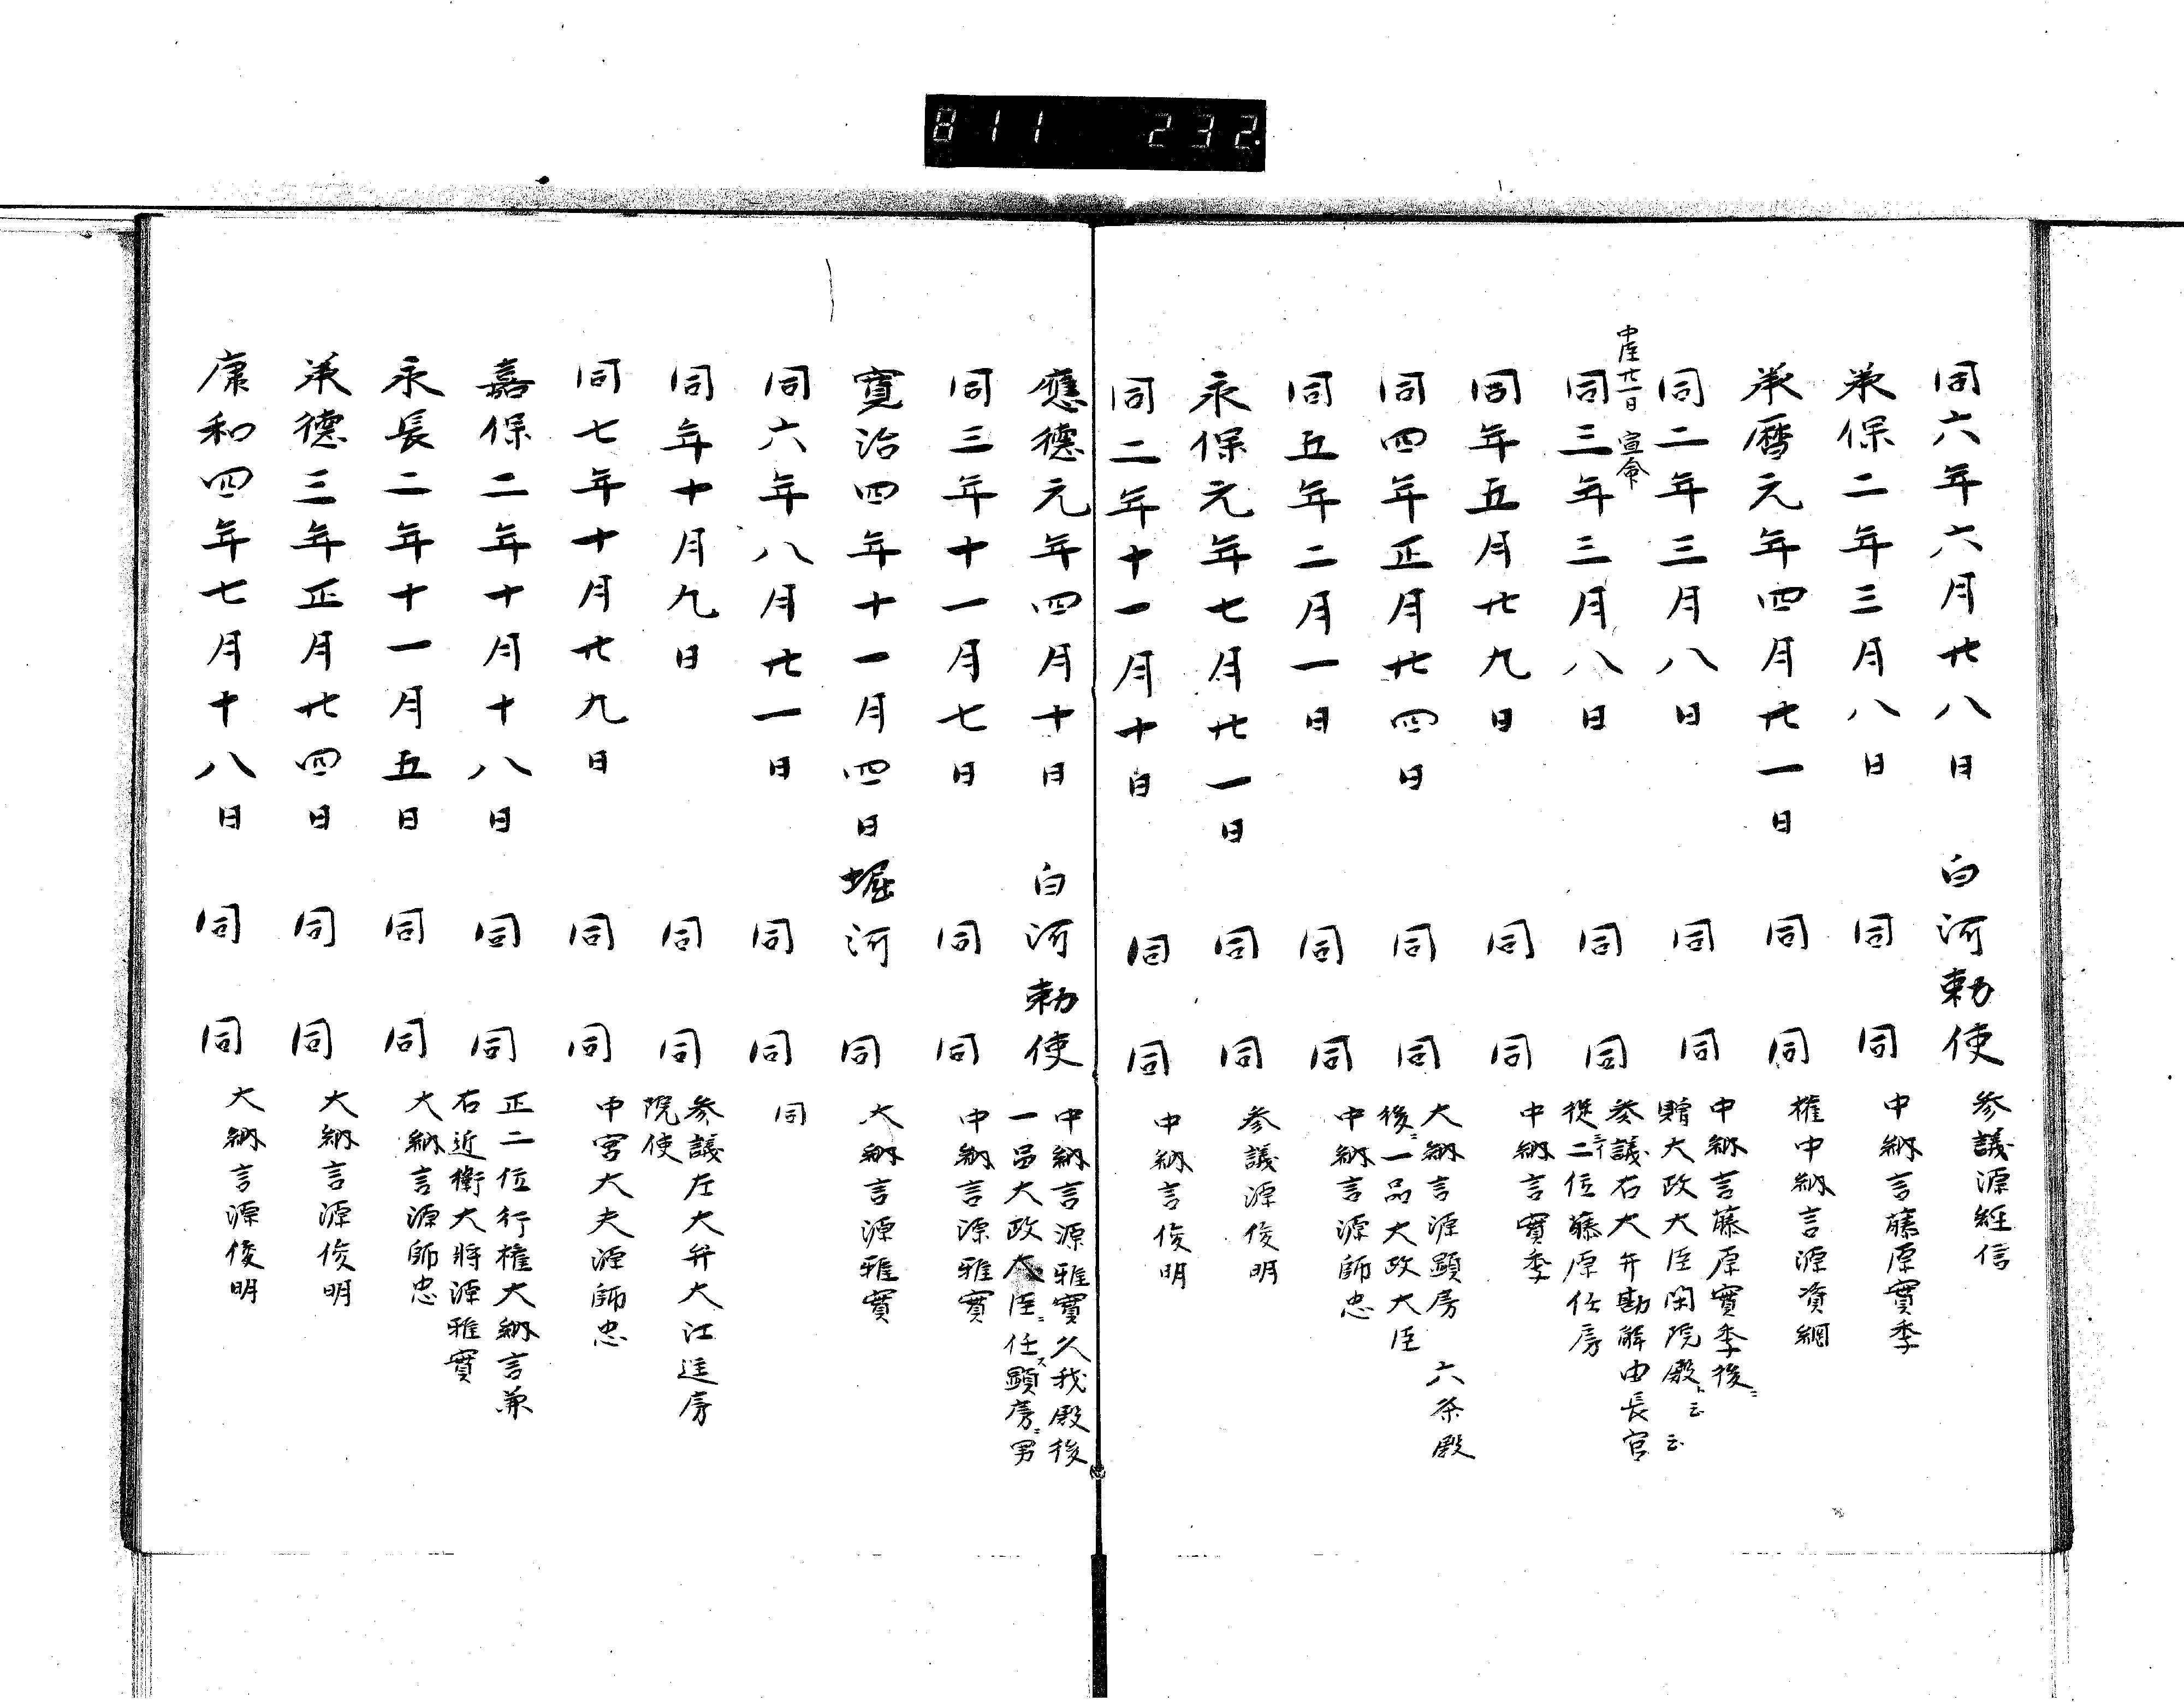 811 232.
同六年六月廿八日 白河勅使 参議源経信
承保二年三月八日 同 同 中納言藤原實季
承暦元年四月廿一日 同 同 権中納言源資綱
同二年三月八日 同 同 中納言藤原實季後ニ
贈大政大臣閑院殿ト云云
宣命
同三年三月八日 同 同 参議右大弁勘解由長官
従二位藤原伊房
同年五月廿九日 同 同 中納言實季
同四年正月廿四日 同 同 大納言源顕房 六条殿
後ニ一品大政大臣
同五年二月一日 同 同 中納言源師忠
永保元年七月廿一日 同 同 参議源俊明
同二年十一月十日 同 同 中納言俊明
應德元年四月十日 白河勅使 中納言源雅實久我殿後
一品大政大臣ニ任ス顕房ニ男
同三年十一月七日 同 同 中納言源雅實
寛治四年十一月四日 堀河 同 大納言源雅實
同六年八月廿一日 同 同 同
同年十月九日 同 同 参議左大弁大江匡房
院使
同七年十月廿九日 同 同 中宮大夫源師忠
嘉保二年十月十八日 同 同 正二位行権大納言兼
右近衛大将源雅實
永長二年十一月五日 同 同 大納言源師忠
承德三年正月廿四日 同 同 大納言源俊明
康和四年七月十八日 同 同 大納言源俊明